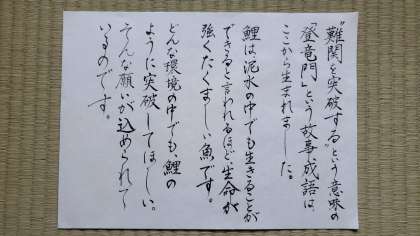 ”難関を突破する”という意味の
「登竜門」という故事成語は、
ここから生まれました。
鯉は泥水の中でも生きることが
できると言われるほど、生命が
強くたくましい魚です。
どんな環境の中でも、鯉の
ように突破してほしい。
そんな願いが込められて
いるのです。